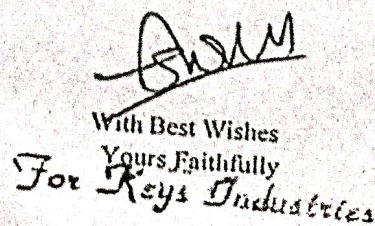 With Best Wishes
Yours Faithfully
For Keys Industries